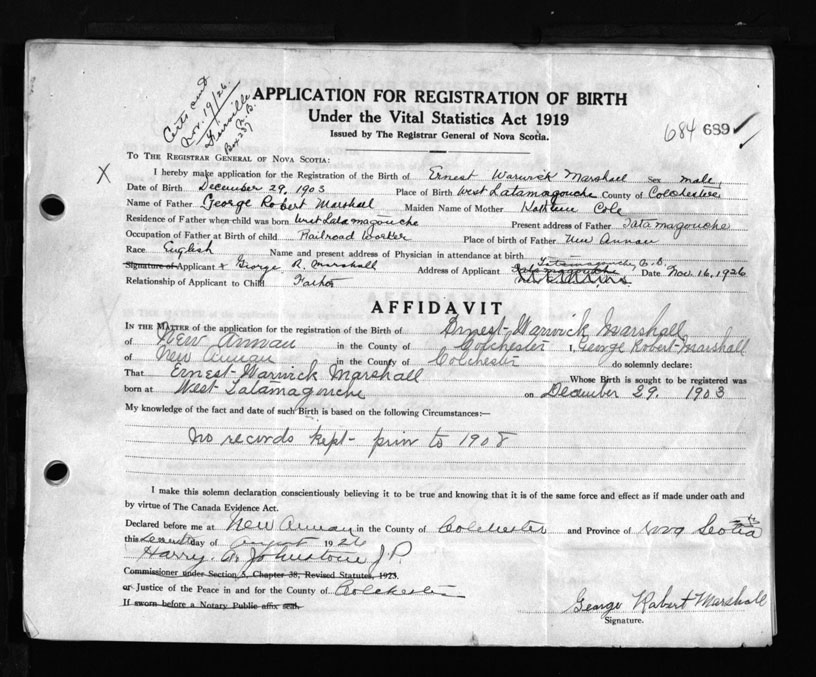 Certs and
Nov. 19/26.
APPLICATION FOR REGISTRATION OF BIRTH
Under the Vital Statistics Act 1919
684 689 ✓
Issued by The Registrar General of Nova Scotia.
TO THE REGISTRAR GENERAL OF NOVA SCOTIA:
X I hereby make application for the Registration of the Birth of Ernest Warwick Marshall Sex male
Date of Birth December 29, 1903 Place of Birth West Tatamagouche County of Colchester
Name of Father George Robert Marshall Maiden Name of Mother Cole
Residence of Father when child was born West Tatamagouche Present address of Father Tatamagouche
Occupation of Father at Birth of child Railroad Worker Place of birth of Father New Annan
Race English Name and present address of Physician in attendance at birth
Signature of Applicant x George R. Marshall Address of Applicant Tatamagouche, Date Nov. 16, 1926
Relationship of Applicant to Child Father
AFFIDAVIT
IN THE MATTER of the application for the registration of the Birth of Ernest Warwick Marshall
of New Annan in the County of Colchester I, George Robert Marshall
of New Annan in the County of Colchester do solemnly declare:
That Ernest Warwick Marshall Whose Birth is sought to be registered was
born at West Tatamagouche on December 29. 1903
My knowledge of the fact and date of such Birth is based on the following Circumstances:—
No records kept prior to 1908
I make this solemn declaration conscientiously believing it to be true and knowing that it is of the same force and effect as if made under oath and
by virtue of The Canada Evidence Act.
Declared before me at New Annan in the County of Colchester and Province of Nova Scotia
this day of August 1926
Harry Johnstone J.P.
Commissioner under Section 5, Chapter 38, Revised Statutes, 1923.
or Justice of the Peace in and for the County of Colchester
If sworn before a Notary Public affix seal.
George Robert Marshall
Signature.